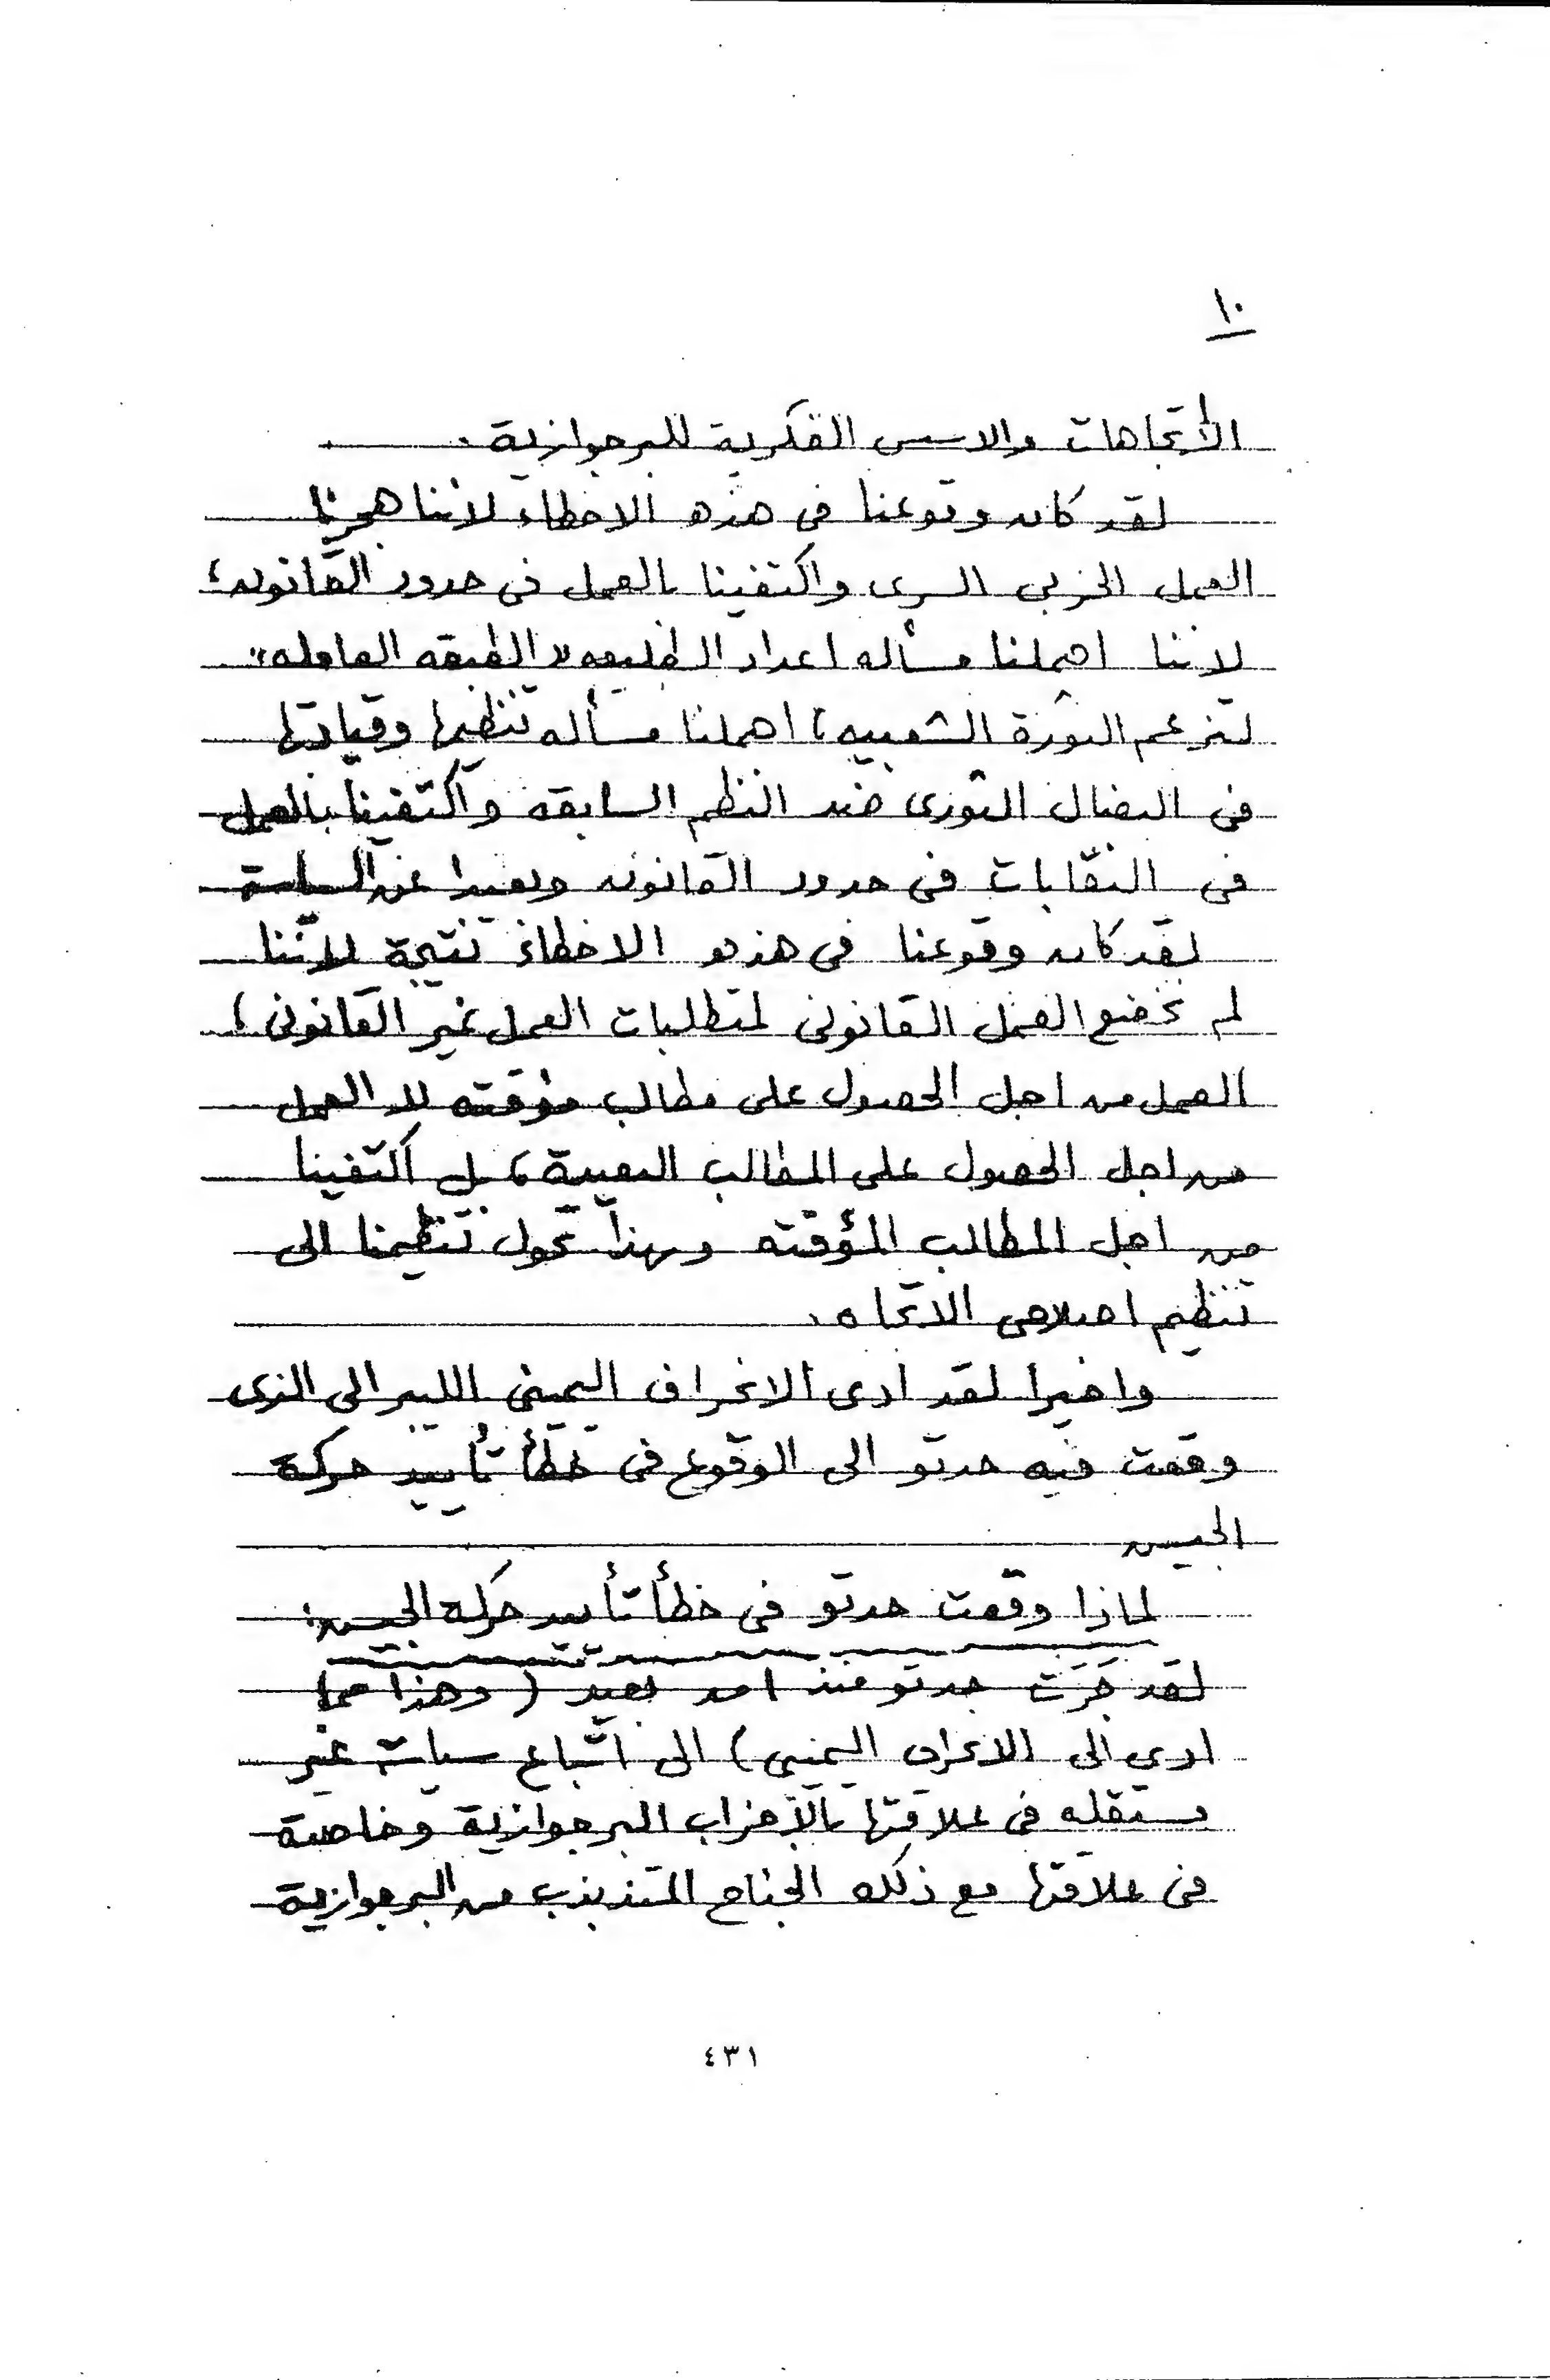 ١٠
الأتجاهات والاسس الفكرية للبرجوازية .
لقد كان وقوعنا فى هذه الاخطاء لأننا هجرنا
العمل الحزبى السرى واكتفينا بالعمل فى حدود القانون،
لاننا اهملنا مسأله اعداد الطليعه "الطبقه العامله"
لتزعم الثورة الشعبيه، اهملنا مسأله تنظيمها وقيادتها
فى النضال الثورى ضد النظم السابقه واكتفينا بالعمل
فى النقابات فى حدود القانون وبعيدا عن السياسة
لقد كان وقوعنا فى هذه الاخطاء نتيجة لاننا
لم نخضع العمل القانونى لمتطلبات العمل غير القانونى،
العمل من اجل الحصول على مطالب مؤقته لا العمل
من اجل الحصول على المطالب البعيدة، بل اكتفينا
من اجل المطالب المؤقته وبهذا تحول تنظيمنا الى
تنظيم اصلاحى الاتجاه.
واخيرا لقد ادى الانحراف اليمينى الليبرالى الذى
وقعت فيه حدتو الى الوقوع فى خطأ تأييد حركة
الجيش
لماذا وقعت حدتو فى خطأ تأييد حركة الجيش:
لقد جَرَت حدتو منذ امد بعيد (وهذا مما
ادى الى الانحراف اليمينى) الى اتباع سياسة غير
مستقله فى علاقتها بالأحزاب البرجوازية وخاصة
فى علاقتها مع ذلك الجناح المتذبذب من البرجوازية
٤٣١